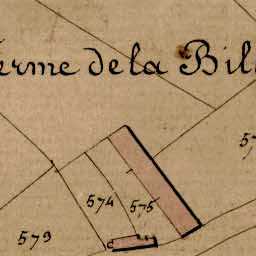 erme de la Bil
57
574
575
573